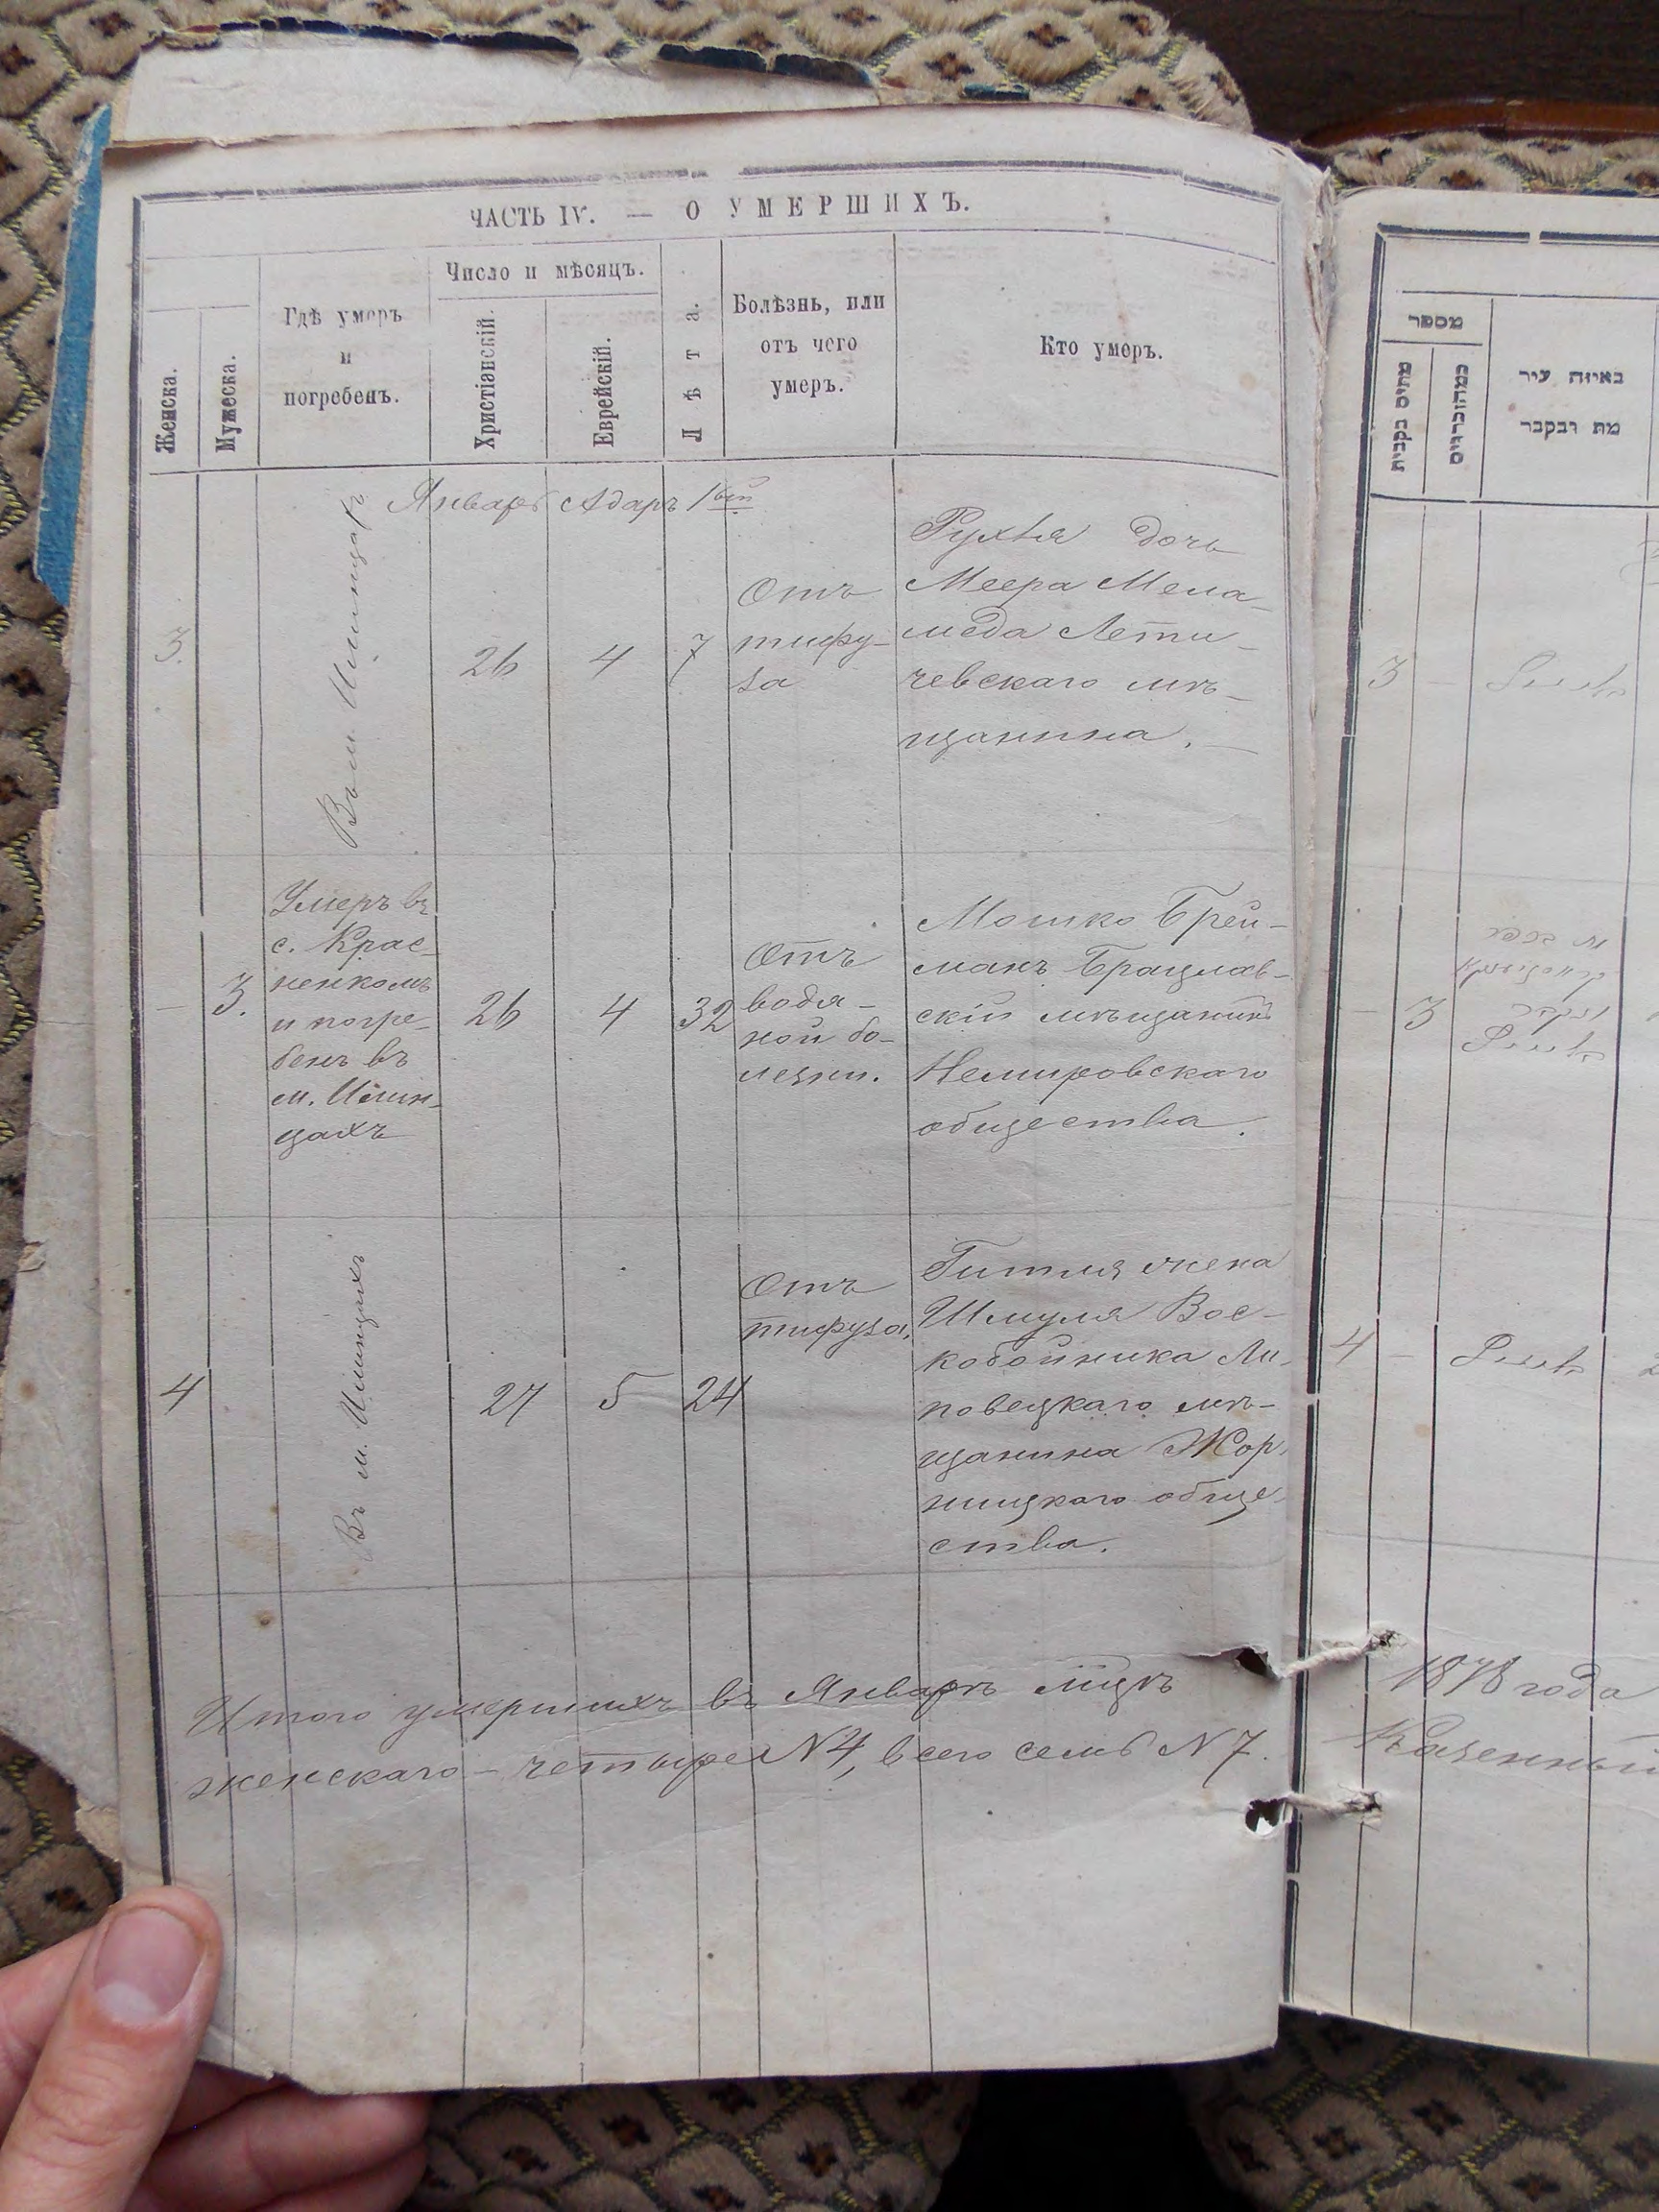 ЧАСТЬ IV. — О УМЕРШИХЪ.
Женска.
Мужеска.
Гдѣ умеръ
и
погребенъ.
Число и мѣсяцъ.
Христіанскій.
Еврейскій.
Лѣта.
Болѣзнь, или
отъ чего
умеръ.
Кто умеръ.
Январь Адаръ 1ый
3.
Въ м. Илинцахъ
26
4
7
Отъ
тифу-
за
Рухля дочь
Меера Мела-
меда Лети-
чевскаго мѣ-
щанина. —
—
3.
Умеръ въ
с. Крас-
ненкомъ
и погре-
бенъ въ
м. Илин-
цахъ
26
4
32
Отъ
водя-
ной бо-
лезни.
Мошко Брей-
манъ Брацлав-
скій мѣщанинъ
Немировскаго
общества.
4
Въ м. Илинцахъ
27
5
24
Отъ
тифуза.
Гитля жена
Шмуля Вос-
кобойника Ли-
повецкаго мѣ-
щанина Жор-
нищкаго обще-
ства.
Итого умершихъ въ Январѣ мцѣ
женскаго – четыре N4, всего семь N7.
מספר
באיזה עיר
מת ונקבר
3
— 3
4 —
1878 года
Казенный